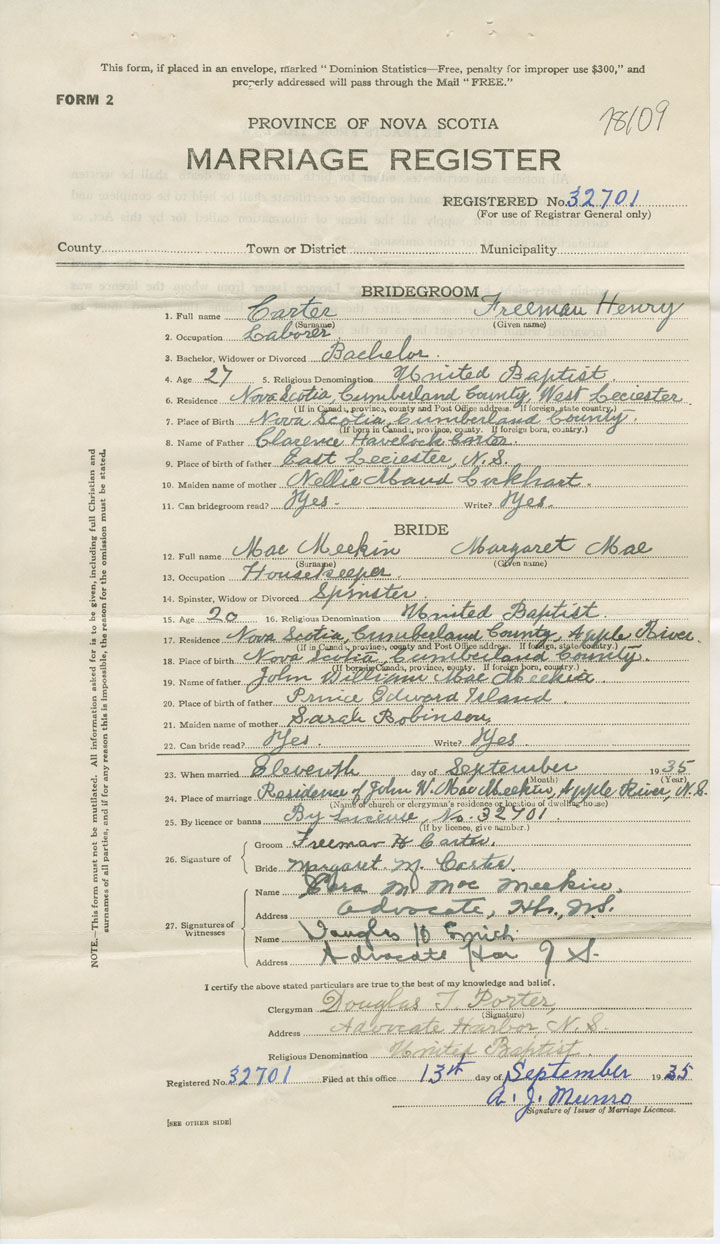 This form, if placed in an envelope, marked "Dominion Statistics—Free, penalty for improper use $300," and
properly addressed will pass through the Mail "FREE."
FORM 2
18109
PROVINCE OF NOVA SCOTIA
MARRIAGE REGISTER
REGISTERED No. 32701
(For use of Registrar General only)
County Town or District Municipality
BRIDEGROOM
1. Full name Carter Freeman Henry
(Surname) (Given name)
2. Occupation Laborer
3. Bachelor, Widower or Divorced Bachelor.
4. Age 27 5. Religious Denomination United Baptist.
6. Residence Nova Scotia, Cumberland County, West Leciester
(If in Canada, province, county and Post Office address. If foreign, state country.)
7. Place of Birth Nova Scotia, Cumberland County.
(If born in Canada, province, county. If foreign born, country.)
8. Name of Father Clarence Havelock Carter.
9. Place of birth of father East Leciester, N.S.
10. Maiden name of mother Nellie Maud Lockhart.
11. Can bridegroom read? Yes. Write? Yes.
BRIDE
12. Full name Mac Meekin Margaret Mae
(Surname) (Given name)
13. Occupation Housekeeper
14. Spinster, Widow or Divorced Spinster
15. Age 20 16. Religious Denomination United Baptist.
17. Residence Nova Scotia, Cumberland County, Apple River.
(If in Canada, province, county and Post Office address. If foreign, state country.)
18. Place of birth Nova Scotia, Cumberland County.
(If born in Canada, province, county. If foreign born, country.)
19. Name of father John William Mac Meekin
20. Place of birth of father Prince Edward Island
21. Maiden name of mother Sarah Robinson
22. Can bride read? Yes. Write? Yes.
23. When married Eleventh day of September 1935
(Month) (Year)
24. Place of marriage Residence of John W. Mac Meekin, Apple River, N.S.
(Name of church or clergyman's residence or location of dwelling house)
25. By licence or banns By License, No. 32701
(If by licence, give number.)
26. Signature of
Groom Freeman H Carter.
Bride Margaret. M. Carter.
27. Signatures of Witnesses
Name M Mac Meekin.
Address Advocate, Hbr, N.S.
Name Smith
Address Advocate Har N S.
I certify the above stated particulars are true to the best of my knowledge and belief.
Clergyman Douglas T. Porter
(Signature)
Address Advocate Harbor, N.S.
Religious Denomination United Baptist.
Registered No. 32701 Filed at this office 13th day of September 1935
A. J. Munro
Signature of Issuer of Marriage Licences.
[SEE OTHER SIDE]
NOTE.—This form must not be mutilated. All information asked for is to be given, including full Christian and
surnames of all parties, and if for any reason this is impossible, the reason for the omission must be stated.